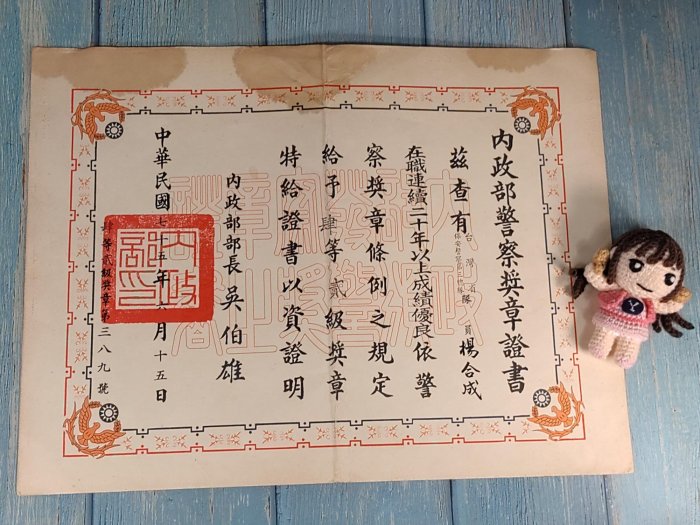 內政部警察奬章證書
茲查有台灣省保安警察第三總隊隊員楊合成
在職連續二十年以上成績優良依警
察奬章條例之規定
給予肆等貳級奬章
特給證書以資證明
內政部部長吳伯雄
中華民國七十五年六月十五日
肆等貳級奬章第三八九號
內政部印
Y